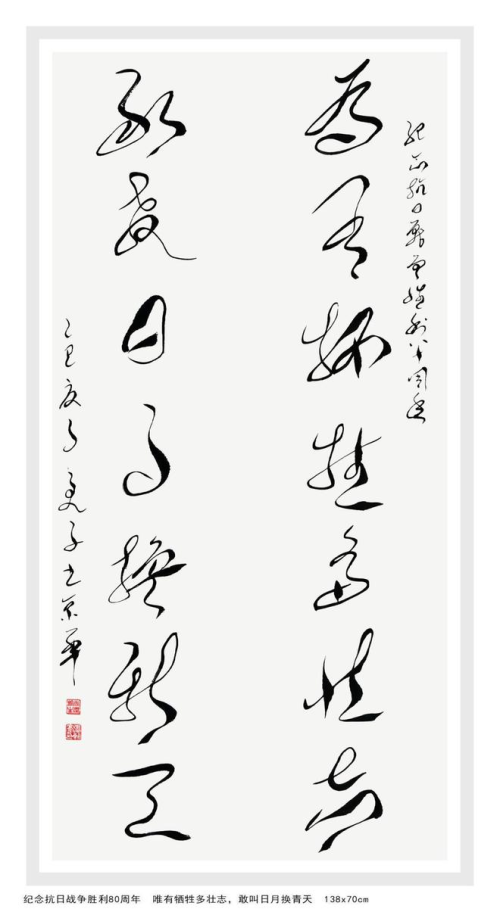 纪念抗日战争胜利八十周年
為有牺牲多壮志
敢教日月換新天
乙巳夏月 京華
纪念抗日战争胜利80周年 唯有牺牲多壮志，敢叫日月换青天 138x70cm